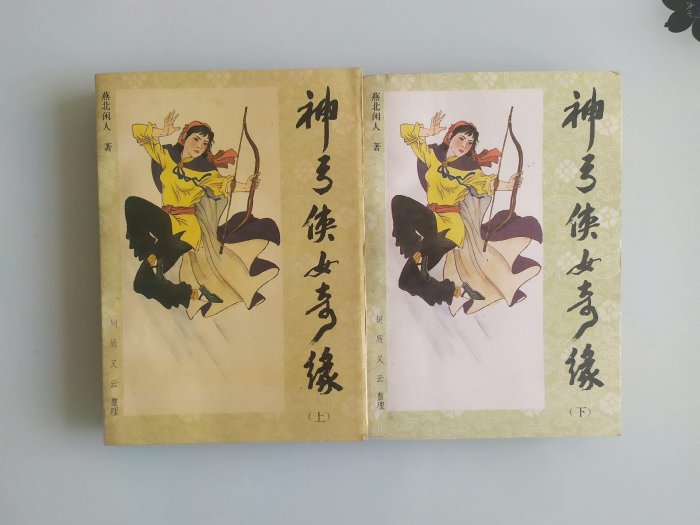 燕北闲人 著
神弓侠女奇缘
（上）
胡质又云 整理
燕北闲人 著
神弓侠女奇缘
（下）
胡质又云 整理